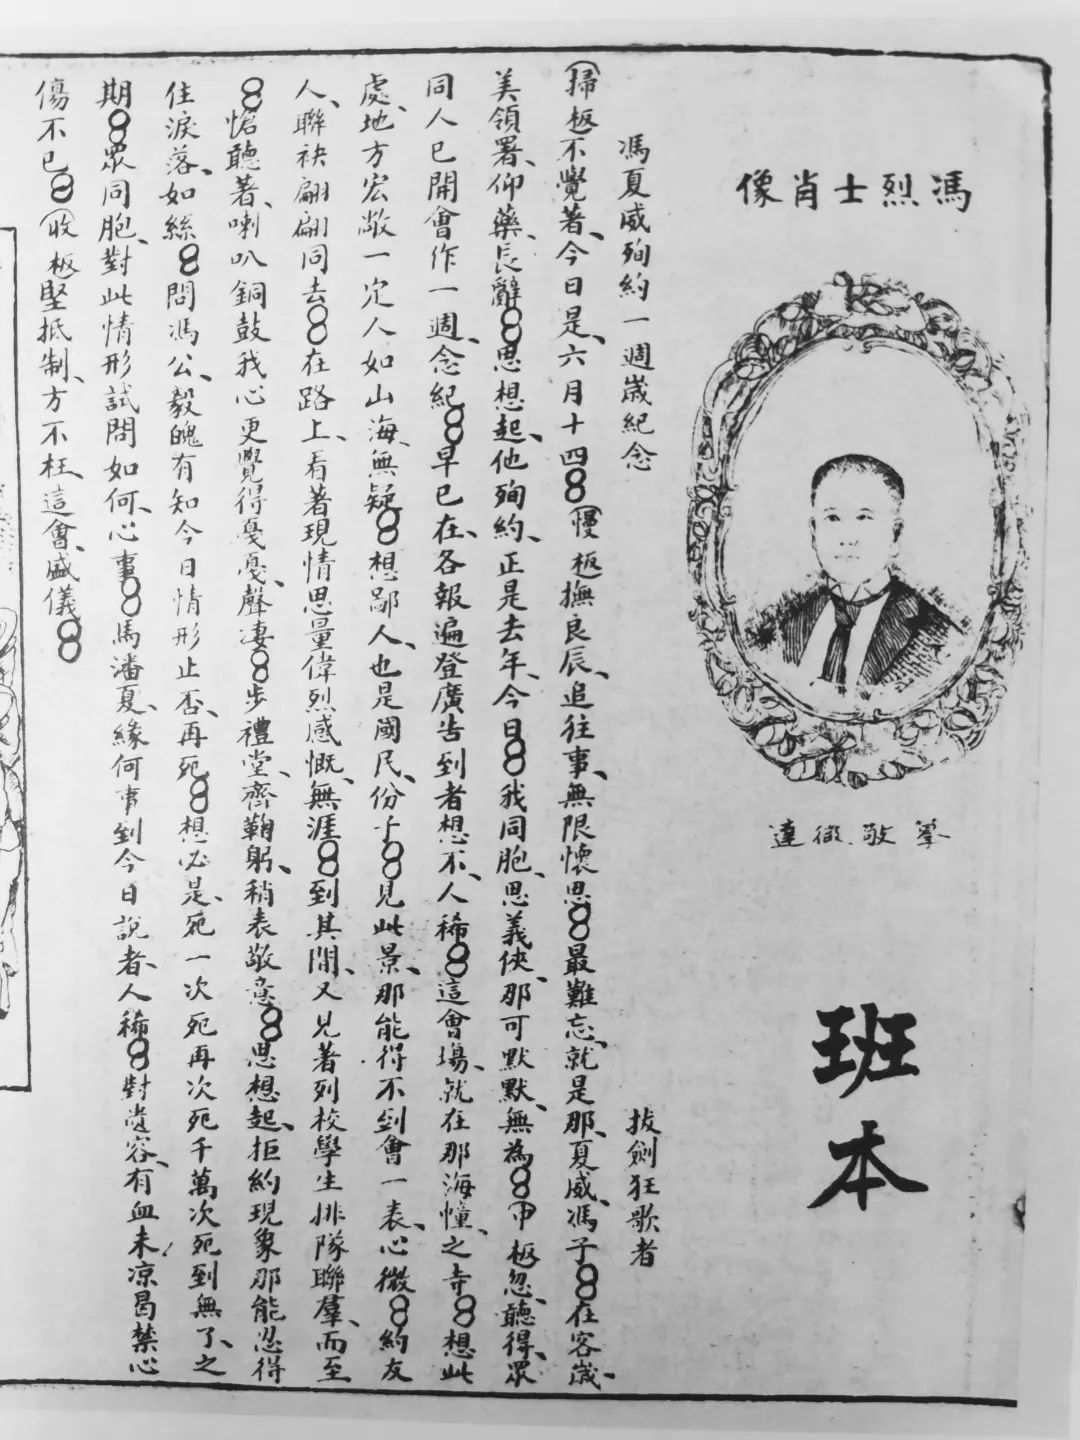 馮烈士肖像
達微敬摹
班本
馮夏威殉約一週歲紀念
拔劍狂歌者
(掃板)不覺著、今日是、六月十四8(慢板)撫良辰、追往事、無限懷思8最難忘、就是那、夏威、馮子8在客歲、
美領署、仰藥、長辭8思想起、他殉約、正是去年、今日8我同胞、思義俠、那可默默、無為8(中板)忽、聽得、眾
同人已開會作一週、念紀8早已在、各報遍登廣告到者想不、人稀8這會場、就在那海幢、之寺8想此
處、地方宏敞一定人如山海、無疑8想鄙人、也是國民、份子8見此景、那能得不到會一表、心微8約友
人、聯袂翩翩同去8在路上、看著現情思量偉烈感慨、無涯8到其間、又見著列校學生排隊聯羣、而至
8恰聽著、喇叭銅鼓我心更覺得憂憂、聲淒8步禮堂、齊鞠躬、稍表敬意8思想起、拒約現象那能忍得
住淚落、如絲8問馮公、毅魄有知今日情形止否、再死8想必是、死一次死再次死千萬次死到無了、之
期8眾同胞、對此情形試問如何、心事8馬潘夏、緣何事到今日說者、人稀8對遺容、有血未凉曷禁心
傷不已8(收板)堅抵制、方不枉、這會、盛儀8